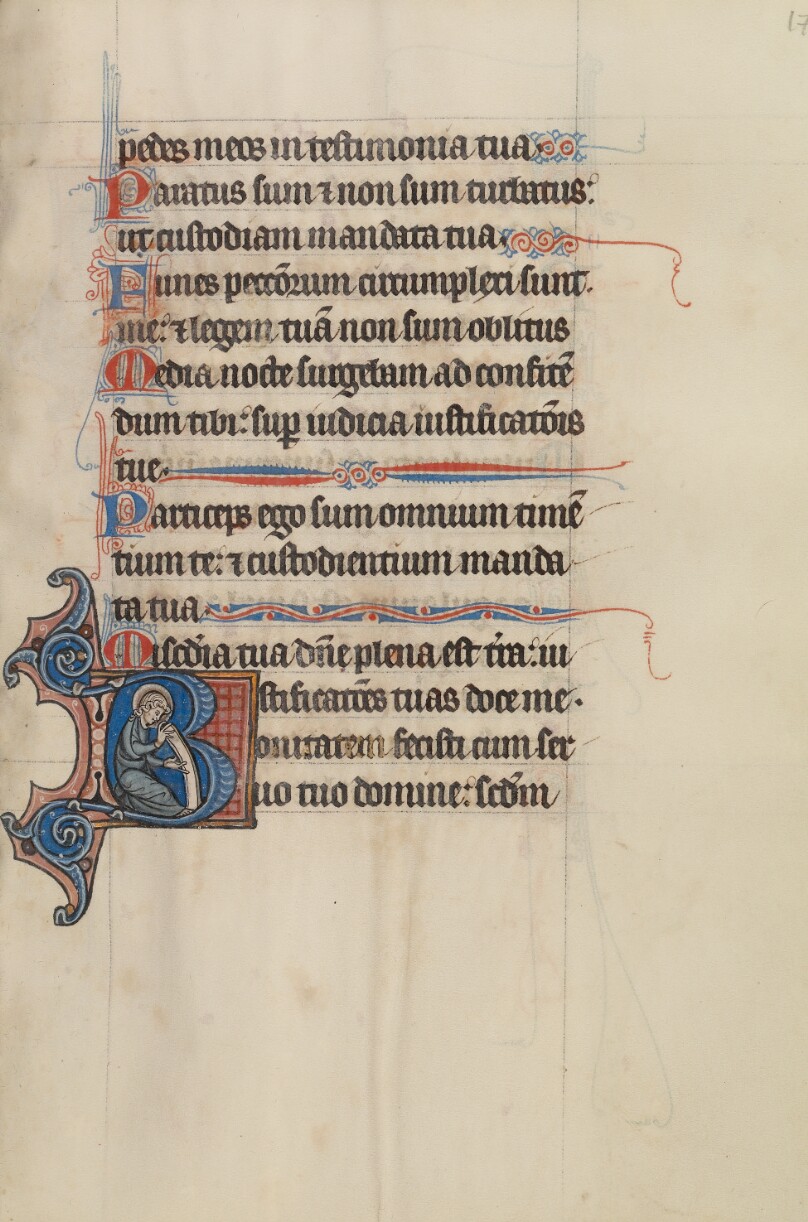 17
pedes meos in testimonia tua
Paratus sum ⁊ non sum turbatus:
ut custodiam mandata tua
Funes pecc̄orum circumplexi sunt.
me: ⁊ legem tuā non sum oblitus
Media nocte surgebam ad confitē
dum tibi: suꝑ iudicia iustificatōis
tue.
Particeps ego sum omnium timē
tium te: ⁊ custodientium manda
ta tua
Miscd̄ia tua dn̄e plena est tr̄a: iu
stificatōes tuas doce me.
Bonitatem fecisti cum ser
uo tuo domine: scd̄m